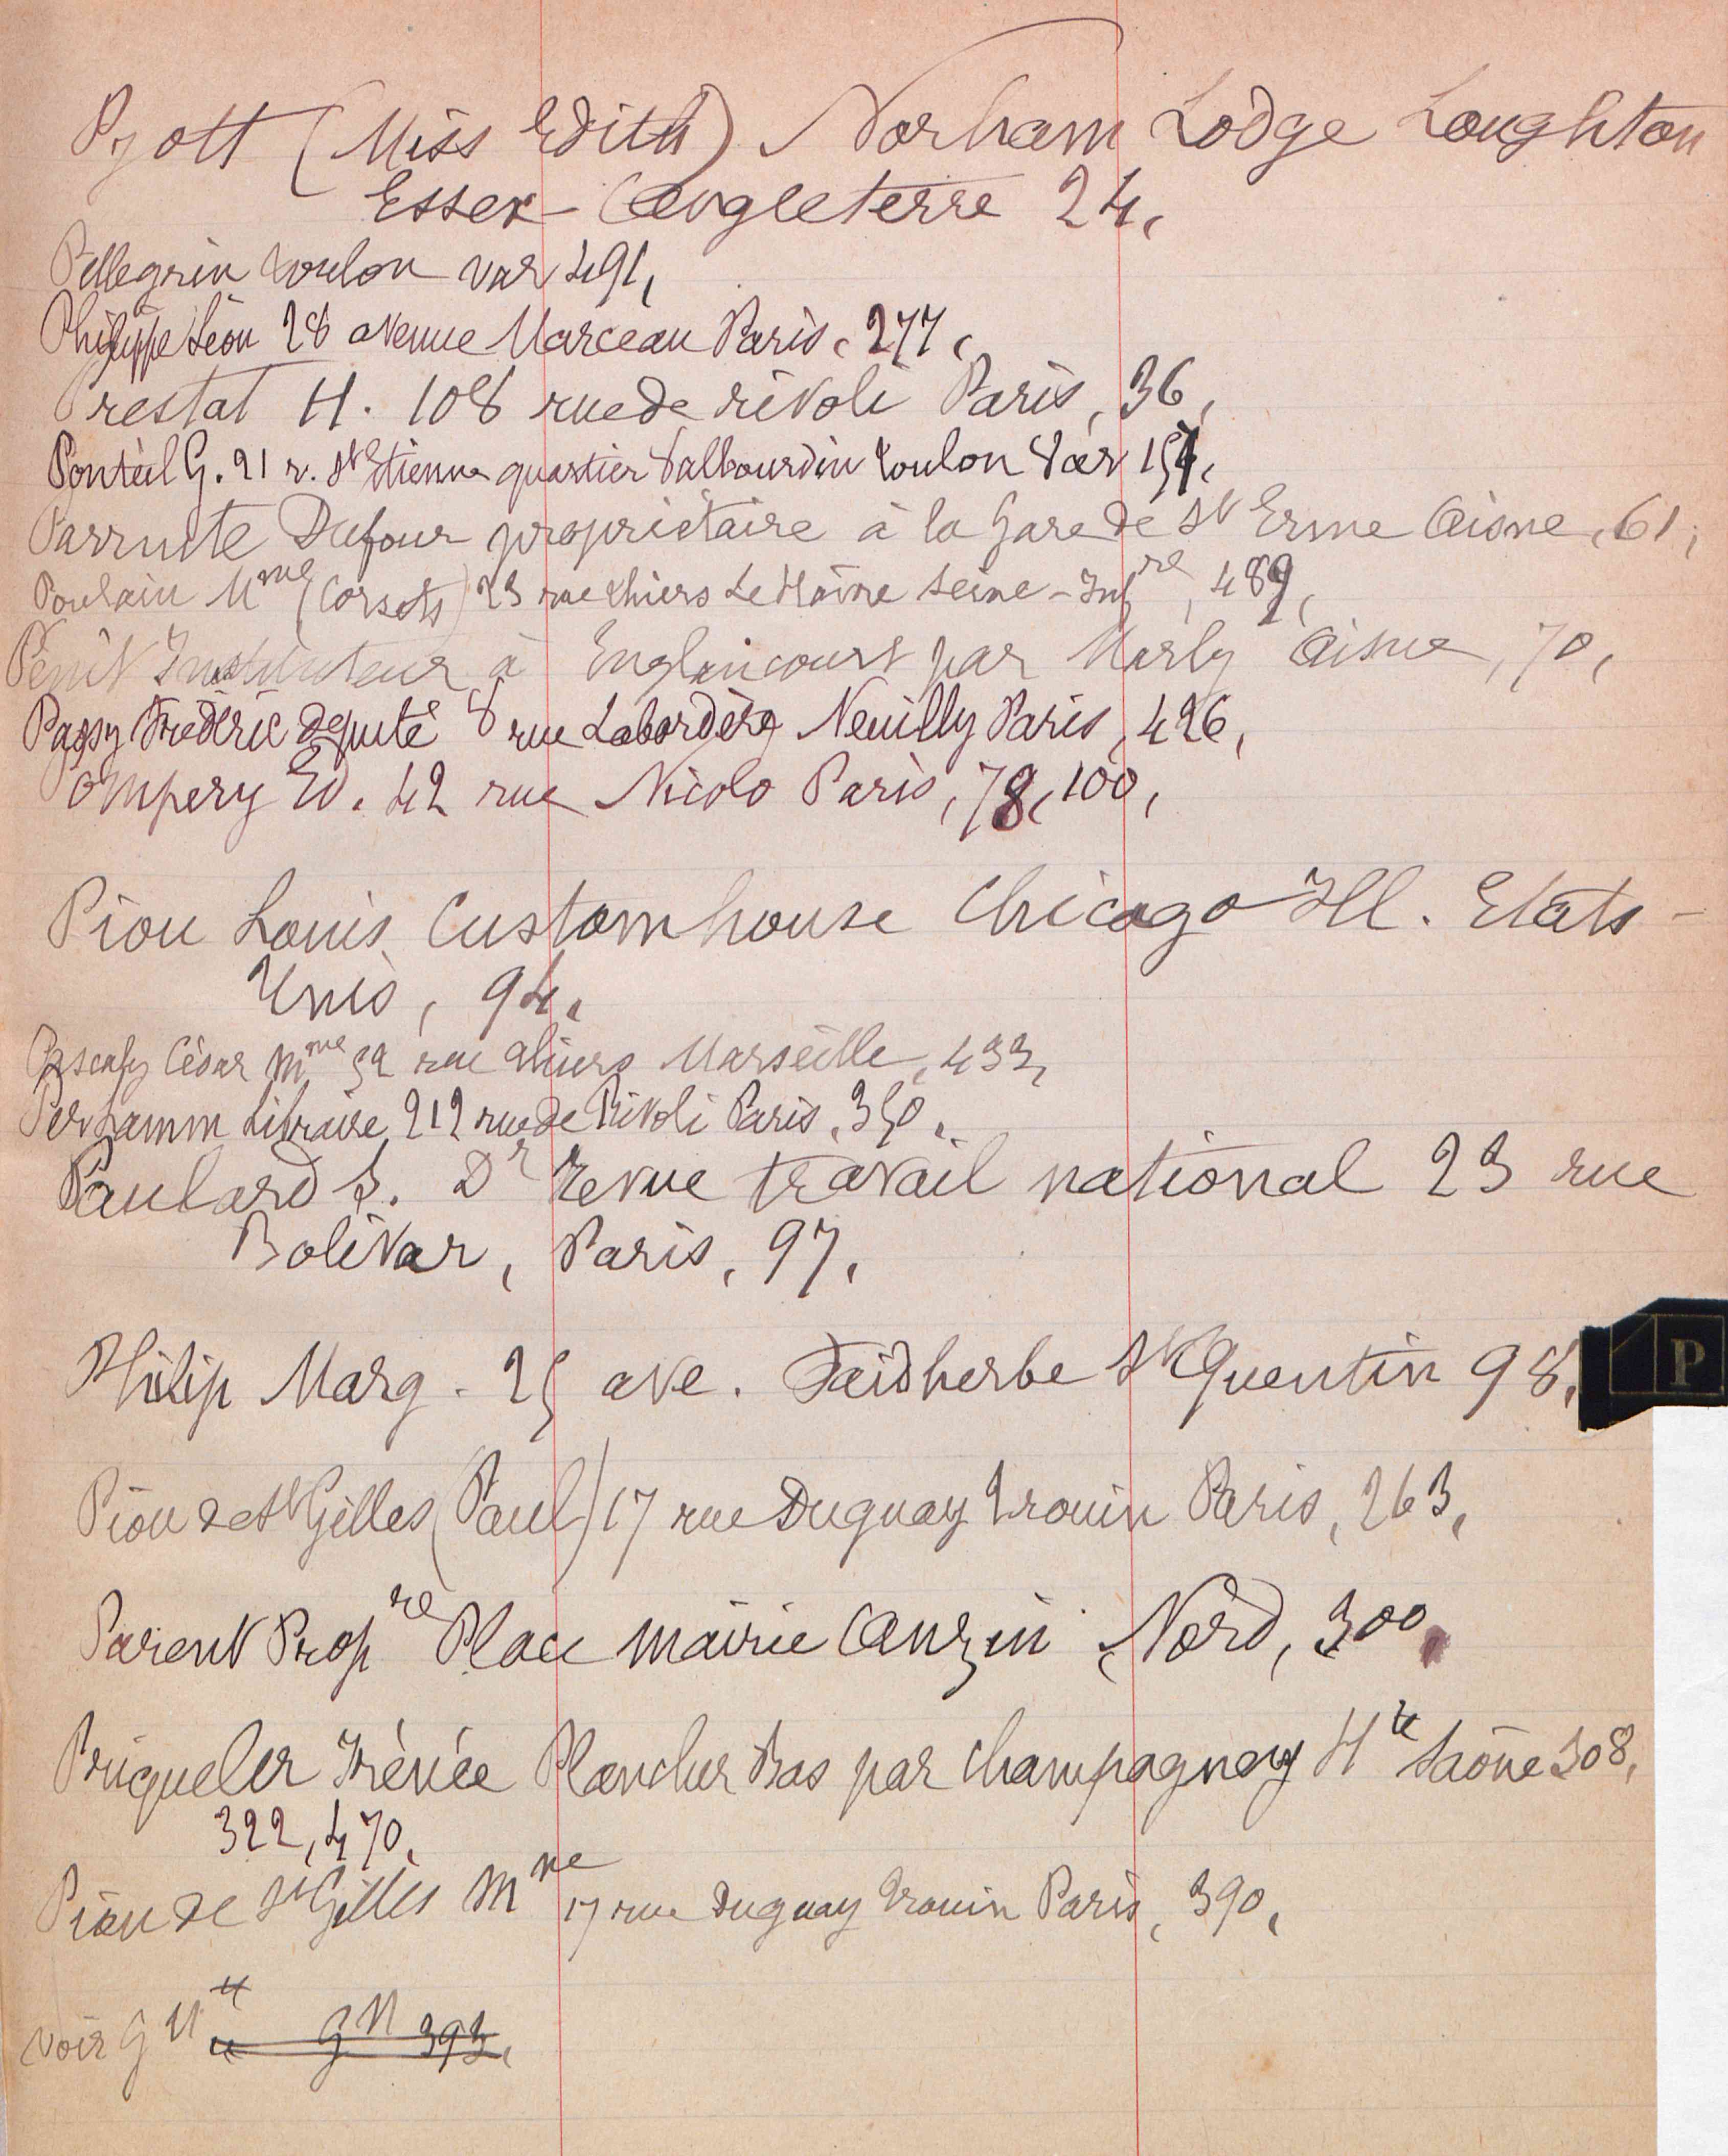 Pyott (Miss Edith) Norham Lodge Loughton
Essex – Angleterre 24,
Pellegrin Toulon Var 491,
Philippe Léon 28 avenue Marceau Paris, 277,
Prestat H. 108 rue de rivoli Paris, 36,
Ponteil G. 21 r. St Etienne quartier Valbourdin Toulon Var 154,
Parruite Dufour propriétaire à la Gare de St Erme Aisne, 61,
Poulain Mme (Corsets) 23 rue Thiers Le Havre Seine-Infre, 489,
Penit Instituteur à Englancourt par Marly Aisne, 70,
Passy Frédéric député 8 rue Labordère Neuilly Paris, 426,
Pompery Ed. 42 rue Nicolo Paris, 78, 100,
Piou Louis Customhouse Chicago Ill. Etats-
Unis, 94,
César Mme 52 rue Thiers Marseille, 433,
Perhamm Libraire, 212 rue de Rivoli Paris, 350,
Paulard S. Dr Revue travail national 23 rue
Bolivar, Paris, 97,
Philip Marg. 25 ave. Faidherbe St Quentin 98,
P
Piou de St Gilles (Paul) 17 rue Duguay Trouin Paris, 263,
Parent Propre Place mairie Anzin Nord, 300,
Priqueler Irénée Plancher Bas par Champagney Hte Saône 308,
322, 470,
Piou de St Gilles Mme 17 rue Duguay Trouin Paris, 390,
voir G N GN 393,